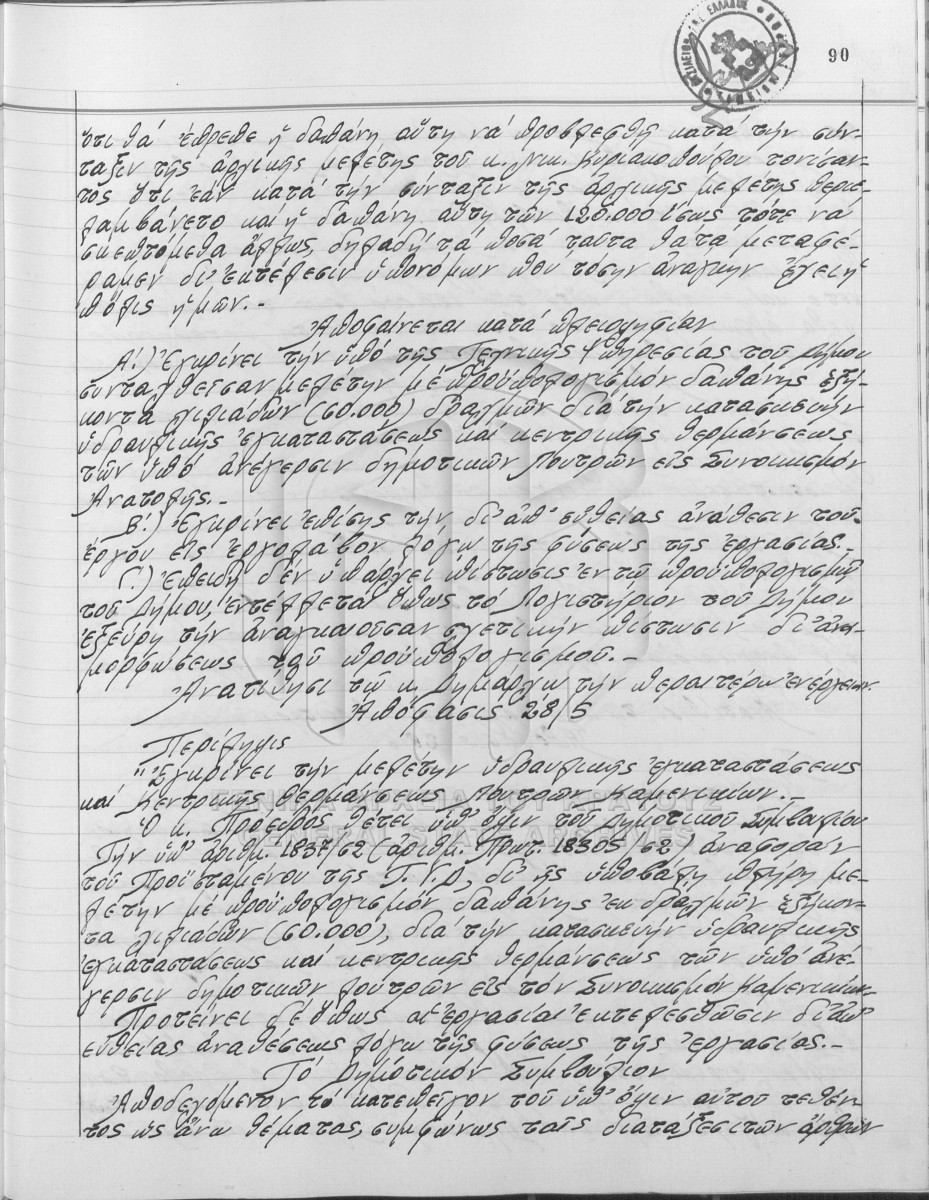 90
ὅτι θά ἔπρεπε ἡ δαπάνη αὕτη νά προβλεφθῇ κατά τήν σύν-
ταξιν τῆς ἀρχικῆς μελέτης τοῦ κ. Νικ. Κυριακοπούλου τονίσαν-
τος ὅτι ἐάν κατά τήν σύνταξιν τῆς ἀρχικῆς μελέτης περιε-
λαμβάνετο καί ἡ δαπάνη αὕτη τῶν 120.000 ἴσως τότε νά
σκεπτόμεθα ἄλλως, δηλαδή τά ποσά ταῦτα θά τά μεταφέ-
ραμεν δι' ἐκτέλεσιν ὑπονόμων πού τόσην ἀνάγκην ἔχει ἡ
πόλις ἡμῶν.-
Ἀποφαίνεται κατά πλειοψηφίαν
Α!) Ἐγκρίνει τήν ὑπό τῆς Τεχνικῆς Ὑπηρεσίας τοῦ Δήμου
συνταχθεῖσαν μελέτην μέ προϋπολογισμόν δαπάνης ἑξή-
κοντα χιλιάδων (60.000) δραχμῶν διά τήν κατασκευήν
ὑδραυλικῆς ἐγκαταστάσεως καί κεντρικῆς θερμάνσεως
τῶν ὑπό ἀνέγερσιν δημοτικῶν λουτρῶν εἰς Συνοικισμόν
Ἀνατολῆς.-
Β!) Ἐγκρίνει ἐπίσης τήν δι' ἀπ' εὐθείας ἀνάθεσιν τοῦ
ἔργου εἰς ἐργολάβον λόγω τῆς φύσεως τῆς ἐργασίας.-
Γ!) Ἐπειδή δέν ὑπάρχει πίστωσις ἐν τῷ προϋπολογισμῷ
τοῦ Δήμου, ἐντέλλεται ὅπως τό Λογιστήριον τοῦ Δήμου
ἐξεύρη τήν ἀναγκαιοῦσαν σχετικήν πίστωσιν δι' ἀνα-
μορφώσεως τοῦ προϋπολογισμοῦ.-
Ἀνατίθησι τῷ κ. Δημάρχω τήν περαιτέρω ἐνέργειαν.
Ἀπόφασις 28/5
Περίληψις
"Ἐγκρίνει τήν μελέτην ὑδραυλικῆς ἐγκαταστάσεως
καί Κεντρικῆς θερμάνσεως Λουτρῶν Καμενικίων.-
ΓΕΝΙΚΑ ΑΡΧΕΙΑ ΤΟΥ ΚΡΑΤΟΥΣ
GENERAL STATE ARCHIVES
Ὁ κ. Πρόεδρος θέτει ὑπ' ὄψιν τοῦ Δημοτικοῦ Συμβουλίου
τήν ὑπ' ἀριθμ. 1837/62 (ἀριθμ. Πρωτ. 18305/62) ἀναφοράν
τοῦ Προϊσταμένου τῆς Τ.Υ.Δ, δι' ἧς ὑποβάλη πλήρη με-
λέτην μέ προϋπολογισμόν δαπάνης ἐκ δραχμῶν ἑξήκον-
τα χιλιάδων (60.000), διά τήν κατασκευήν ὑδραυλικῆς
ἐγκαταστάσεως καί κεντρικῆς θερμάνσεως τῶν ὑπό ἀνέ-
γερσιν δημοτικῶν λουτρῶν εἰς τόν Συνοικισμόν Καμενικίων.
Προτείνει δέ ὅπως αἱ ἐργασίαι ἐκτελεσθῶσιν δι' ἀπ'
εὐθείας ἀναθέσεως λόγω τῆς φύσεως τῆς ἐργασίας.-
Τό Δημοτικόν Συμβούλιον
Ἀποδεχόμενον τό κατεπεῖγον τοῦ ὑπ' ὄψιν αὐτοῦ τεθέν-
τος ὡς ἄνω θέματος, συμφώνως ταῖς διατάξεσι τῶν ἄρθρων